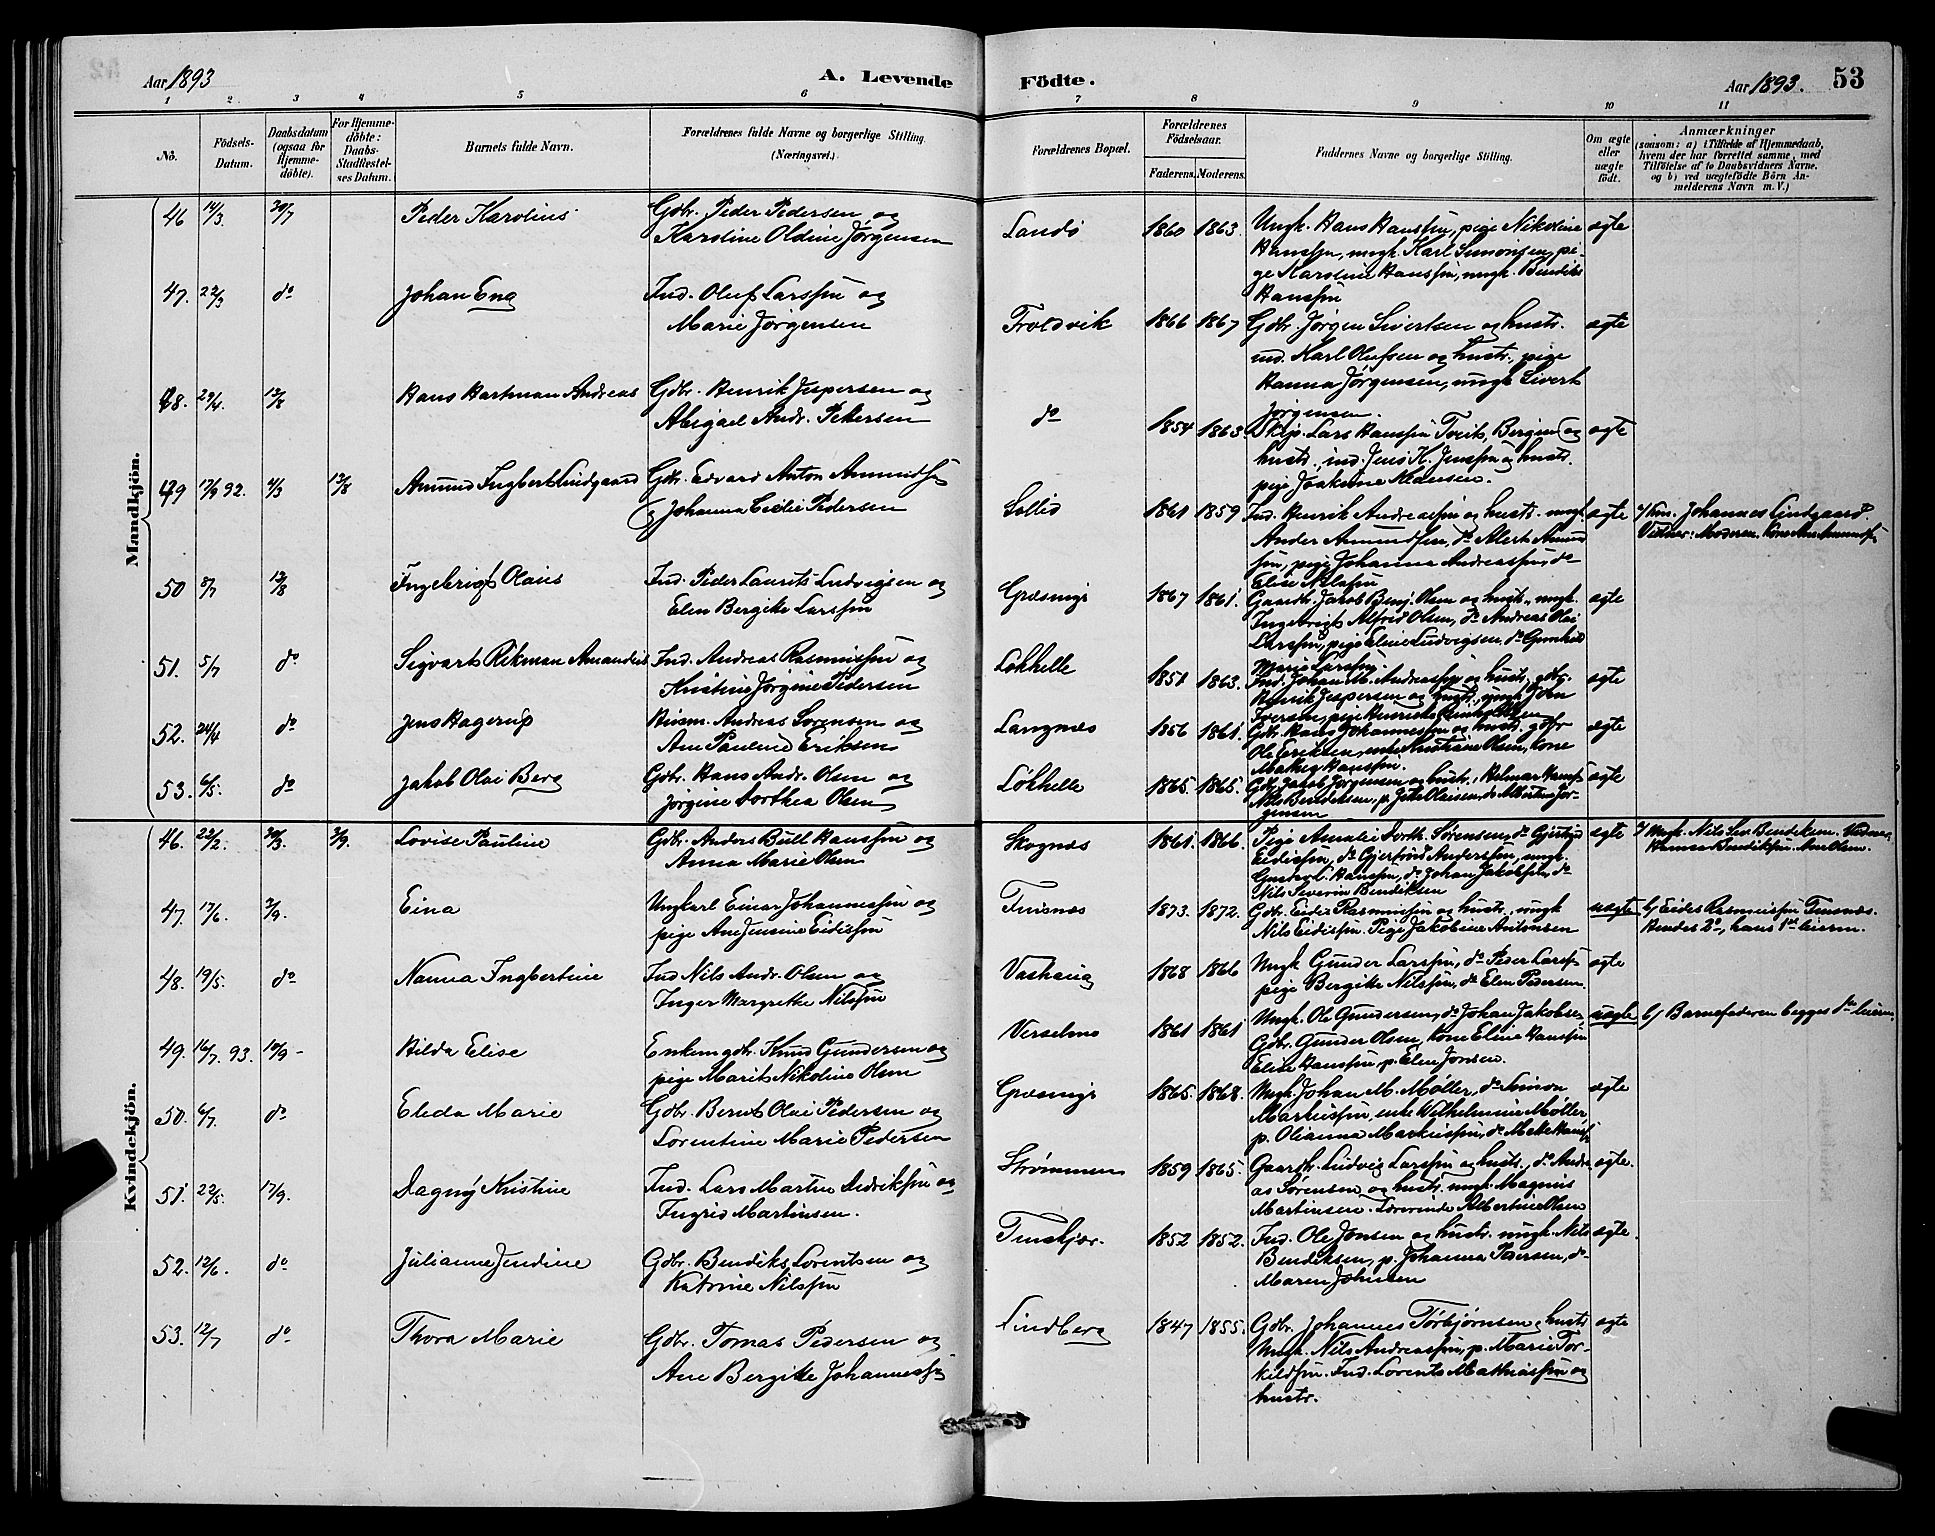 Aar 1893
A. Levende
Födte.
Aar 1893.
53
1 2 3 4 5 6 7 8 9 10 11
No.
Födsels-
Datum.
Daabsdatum
(ogsaa for
Hjemme-
döbte).
For Hjemme-
döbte:
Daabs-
Stadfæstel-
ses Datum.
Barnets fulde Navn.
Forældrenes fulde Navne og borgerlige Stilling.
(Næringsvei.)
Forældrenes Bopæl.
Forældrenes
Födselsaar.
Faderens. Moderens.
Faddernes Navne og borgerlige Stilling.
Om ægte
eller
uægte
födt.
Anmærkninger
(saasom: a) i Tilfælde af Hjemmedaab,
hvem der har forrettet samme, med
Tilföielse af to Daabsvidners Navne.
og b) ved uægtefödte Börn An-
melderens Navn m. V.)
Mandkjön.
46 14/3. 30/7 Peder Karolius Gdbr. Peder Pedersen og
Karoline Oldine Jørgensen
Sandø 1860 1863. Ungk. Hans Hanssen, pige Nikoline ægte
Hanssen, ungk. Karl Simonsen, pi-
ge Karoline Hanssen, ungk. Bendiks
Hanssen
47. 22/3 do Johan Eng Ind. Oluf Larssen og
Marie Jørgensen
Troldvik 1866 1867 Gdbr. Jørgen Sivertsen og hustr. ægte
ind. Karl Olufsen og hustr., pige
Hanna Jørgensen, ungk. Sivert
Jørgensen.
48. 29/4. 13/8 Hans Hartman Andreas Gdbr. Henrik Jespersen og
Abigael Andr. Pettersen
do 1854 1863. Skip. Lars Hanssen Tveit, Bergen og ægte
hustr., ind. Jens K. Jenssen og hustr.
pige Joakime Klausen.
49 17/9 92. 4/3 13/8 Amund Ingbert Lindgaard Gdbr. Edvard Anton Amundsen
og Johanna Cecilie Pedersen
Sollid 1861 1859 Ind. Henrik Andreassen og hustr. ungk. ægte
Ander Amundsen, do Albert Amund
sen, pige Johanna Andreassen, do
Elise Nilssen
Johannes Lindgaard.
Vidner: Moderen, Kone Ane Amundsen
50 8/7 13/8 Ingebrigt Olaus Ind. Peder Laurits Ludvigsen og
Elen Bergitte Larssen
Græsmyr 1867 1861. Gaardbr. Jakob Benj. Olsen og hustr., ungk. ægte
Ingebrigt Alfred Olsen, do Andreas Olai
Larssen, pige Eline Ludvigsen, do Gunhild
Marie Larssen.
51. 5/7 do Sigvart Rikman Amandus Ind. Andreas Rasmussen og
Kristine Jørgine Pedersen
Løkhelle 1851 1863. Ind. Johan M. Andreassen og hustr., gdbr. ægte
Henrik Jespersen og hustr., ungk. John
Iversen, pige
52. 24/4 do Jens Hagerup Husm. Andreas Sørensen og
Ane Pauline Eriksen
Langnes 1856 1861. Gdbr. Hans Johannessen og hustr. gdbr ægte
Ole Eriksen, enke Kristiane Olsen, kone
Hanssen.
53. 6/5. do Jakob Olai Berg Gdbr. Hans Andr. Olsen og
Jørgine Dorthea Olsen
Løkhelle 1865. 1865. Gdbr. Jakob Jørgensen og hustr., Helmar Hanss. ægte
Nils Bendiksen, p. Jette Olaisen, do Albertine Jør-
gensen
Kvindekjön.
46. 22/2. 30/3. 3/9. Lovise Pauline Gdbr. Anders Bull Hanssen og
Anna Marie Olsen
Skognes 1861. 1866. Pige Amalie Dorth. Sørensen, do
Eidissen, do Gjertrud Anderssen, ungk.
Hanssen, do Johan Jakobsen, do
Nils Severin Bendiksen
ægte
Ungk. Nils Sev. Bendiksen. Vidner
Hanna Bendiksen. Ane Olsen.
47. 17/6. 3/9. Eina Ungkarl Einar Johannessen og
pige Ane Jensine Eidissen
Tusnes 1873. 1872. Gdbr. Eidis Rasmussen og hustr., ungk uægte
Nils Eidissen. Pige Jakobine Antonsen
b/ Eidis Rasmussen Tusnes.
Hendes 2de, hans 1ste leierm.
48. 19/5. do Nanna Ingbertine Ind Nils Andr. Olsen og
Inger Margrethe Nilssen
Vashaug 1868 1866 Ungk Gunder Larssen, do Peder Larss. ægte
pige Bergitte Nilssen, do Elen Pedersen.
49. 16/7. 93. 10/9 - Hilda Elise Enkem. gdbr. Knud Gundersen og
pige Marit Nikoline Olsen
Verselmo 1861 1861 Ungk. Ole Gundersen, do Johan Jakobsen, uægte
Gdbr. Gunder Olsen, kone Eline Hanssen
Elise Hanssen p. Elen Jonsen.
b/ Barnefaderen begges 1ste leierm.
50. 6/7. do Eleda Marie Gdbr. Bernt Olai Pedersen og
Lorentine Marie Pedersen
Græsmyr 1865. 1868. Ungk Johan M. Møller, do Simon ægte
Markussen, enke Wilhelmine Møller,
p. Olianna Markussen, do Mette Hanss.
51. 29/5. 17/9. Dagny Kristine Ind. Lars Martin Didriksen og
Ingrid Martinsen.
Strømmen 1859 1865. Gaardbr. Ludvig Larssen og hustr., do Andre ægte.
as Sørensen og hustr. ungk. Magnus
Martinsen. Lærerinde Albertine Olsen
52. 12/6. do Julianne Jendine Gdbr. Bendiks Lorentsen og
Katrine Nilssen
Tuskjær. 1852 1852. Ind. Ole Jonsen og hustr. ungk. Nils ægte.
Bendiksen, p. Johanna Pedersen, do
Maren Johnsen
53. 12/7 do Thora Marie Gdbr. Tomas Pedersen og
Ane Bergitte Johannessen
Lindberg 1847 1855. Gdbr. Johannes Torbjørnsen og hustr ægte
Ungk. Nils Andreassen, p. Marie Tor-
kildsen. Ind. Lorents Mathiassen og
hustr.